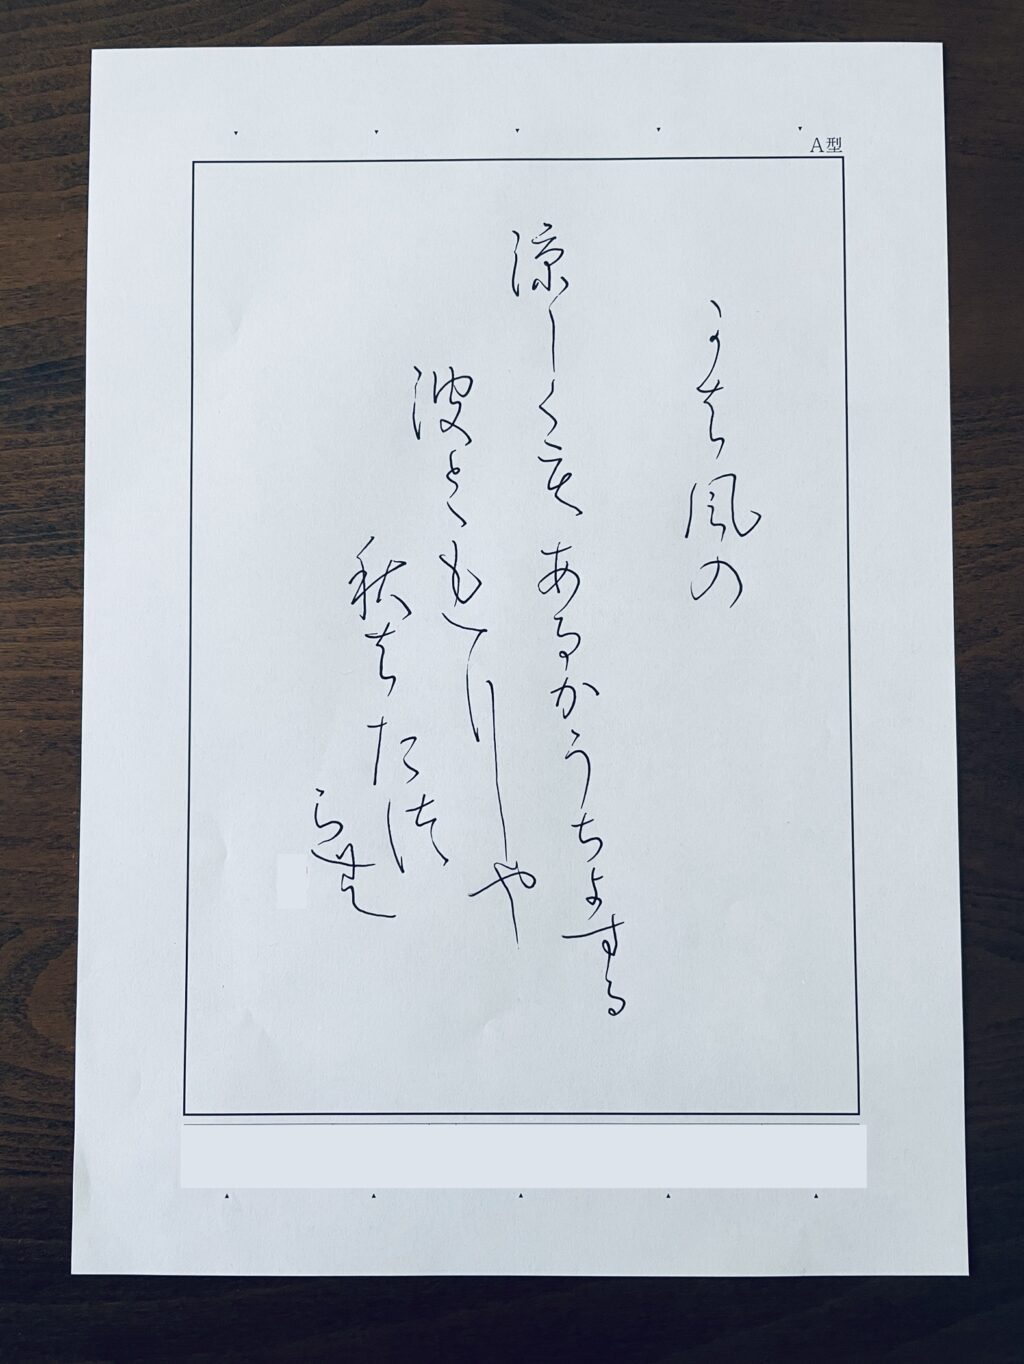 A型
かは風の
涼しくもあるかうちよする
波とゝもにや
秋はたつ
らむ